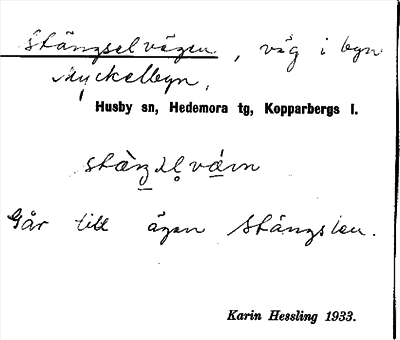 Stängselvägen, väg i byn
Myckelbyn,
Husby sn, Hedemora tg, Kopparbergs l.
Går till ägan Stängslen.
Karin Hessling 1933.